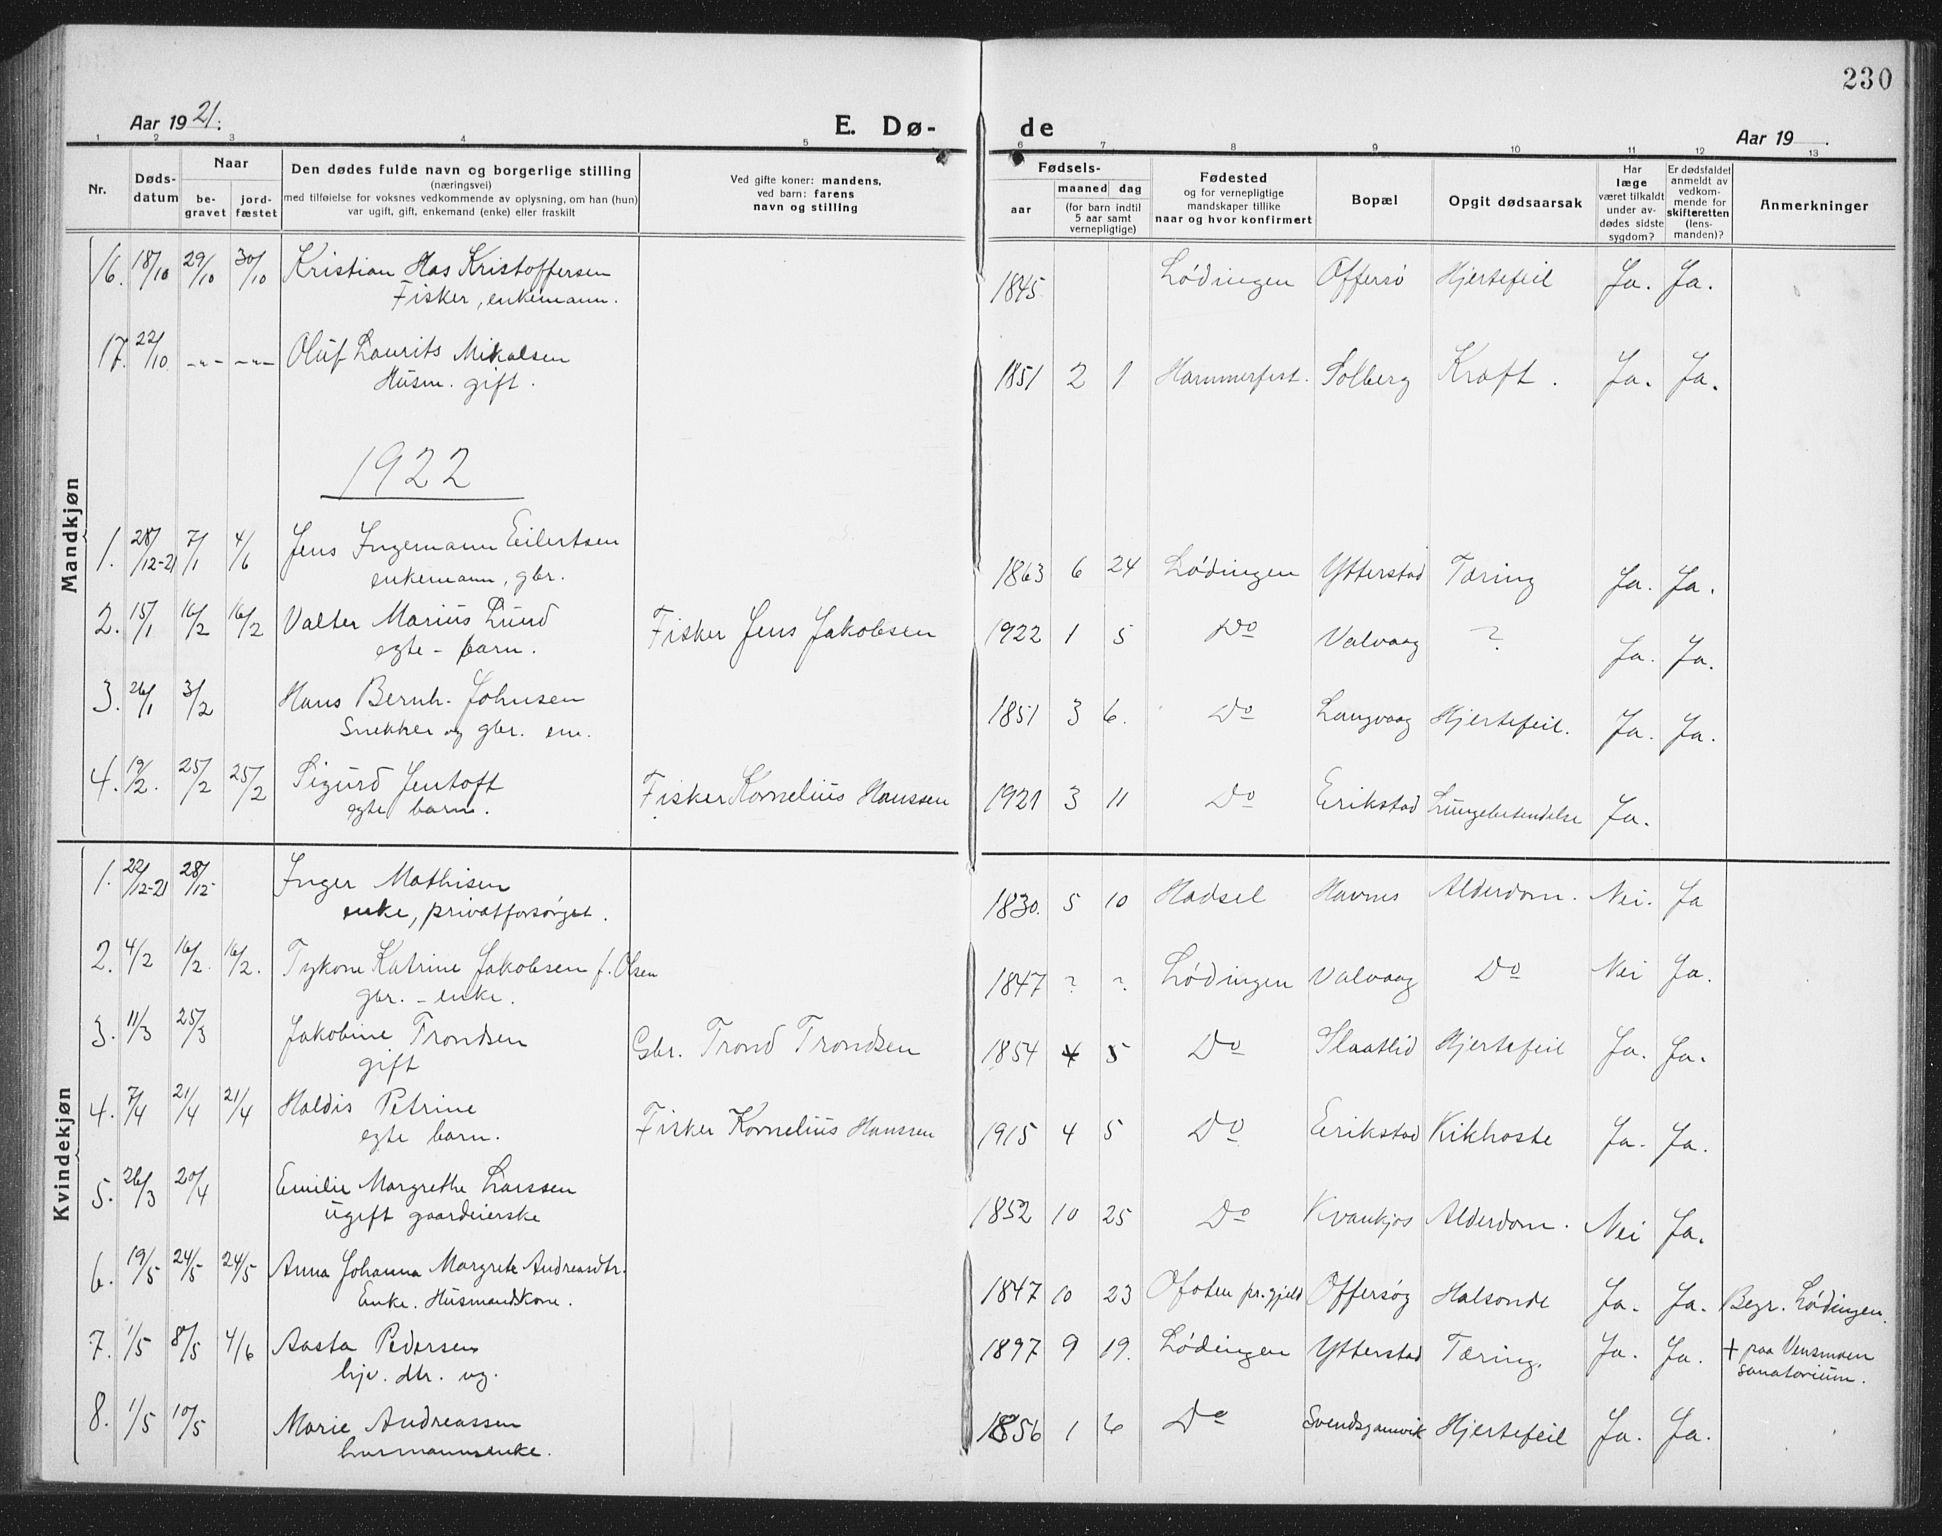 230
Aar 1921.
E. Dø-
de
Aar 19
1 2 3 4 5 6 7 8 9 10 11 12 13
Nr.
Døds-
datum
Naar
be-
gravet
jord-
fæstet
Den dødes fulde navn og borgerlige stilling
(næringsvei)
med tilføielse for voksnes vedkommende av oplysning, om han (hun)
var ugift, gift, enkemand (enke) eller fraskilt
Ved gifte koner: mandens,
ved barn: farens
navn og stilling
Fødsels-
aar
maaned dag
(for barn indtil
5 aar samt
vernepligtige)
Fødested
og for vernepligtige
mandskaper tillike
naar og hvor konfirmert
Bopæl
Opgit dødsaarsak
Har
læge
været tilkaldt
under av-
dødes sidste
sygdom?
Er dødsfaldet
anmeldt av
vedkom-
mende for
skifteretten
(lens-
manden)?
Anmerkninger
Mandkjøn
16. 18/10 29/10 30/10 Kristian Has Kristoffersen 1845 Lødingen Offersø Hjertefeil Ja. Ja.
Fisker, enkemann.
17. 22/10 -"- -"- Oluf Laurits Mikalsen 1851 2 1 Hammerfest. Solberg Kraft. Ja. Ja.
Husm. gift.
1922
1. 28/12-21 7/1 4/6 Jens Ingemann Eilertsen 1863 6 24 Lødingen Ytterstad Tæring Ja. Ja.
enkemann, gbr.
2. 15/1 16/2 16/2 Valter Marius Lund Fisker Jens Jakobsen 1922 1 5 Do Valvaag ? Ja. Ja.
egte-barn.
3. 26/1 3/2 Hans Bernh. Johnsen 1851 3 6. Do Langvaag Hjertefeil. Ja. Ja.
Snekker og gbr. em.
4. 19/2. 25/2 25/2 Sigurd Jentoft Fisker Kornelius Hanssen 1921 3 11 Do Erikstad Lungebetendelse Ja.
egte barn.
Kvindekjøn
1. 22/12-21 28/12 Inger Mathisen 1830. 5 10 Hadsel Havnes Alderdom. Nei. Ja
enke, privatforsørget.
2. 4/2 16/2. 16/2. Tykone Katrine Jakobsen f. Olsen 1847 ? ? Lødingen Valvaag Do Nei Ja.
gbr.-enke.
3. 11/3 25/3 Jakobine Trondsen Gbr. Trond Trondsen 1854 4 5 Do Slaatlid Hjertefeil Ja. Ja.
gift
4. 7/4 21/4 21/4 Haldis Petrine Fisker Kornelius Hanssen 1915 4 5 Do Erikstad Kikhoste Ja. Ja.
egte barn.
5. 26/3 20/4 Emilie Margrethe Larssen 1852 10 25 Do Kvankjos Alderdom. Nei Ja.
ugift gaardeierske
6. 19/5 24/5 24/5 Anna Johanna Margrete Andreasdtr. 1847 10 23 Ofoten pr.gjeld Offersøg Halsonde Ja. Ja. Begr. Lødingen.
Enke. Husmandskone.
7. 1/5 8/5 4/6 Aasta Pedersen 1897 9 19. Lødingen Ytterstad Tæring. Ja. Ja. + paa Vensmoen
hjv. dtr. ug. sanatorium.
8. 1/5 10/5 Marie Andreassen 1856 1 6 Do Svendsgamvik Hjertefeil Ja. Ja.
husmannsenke.